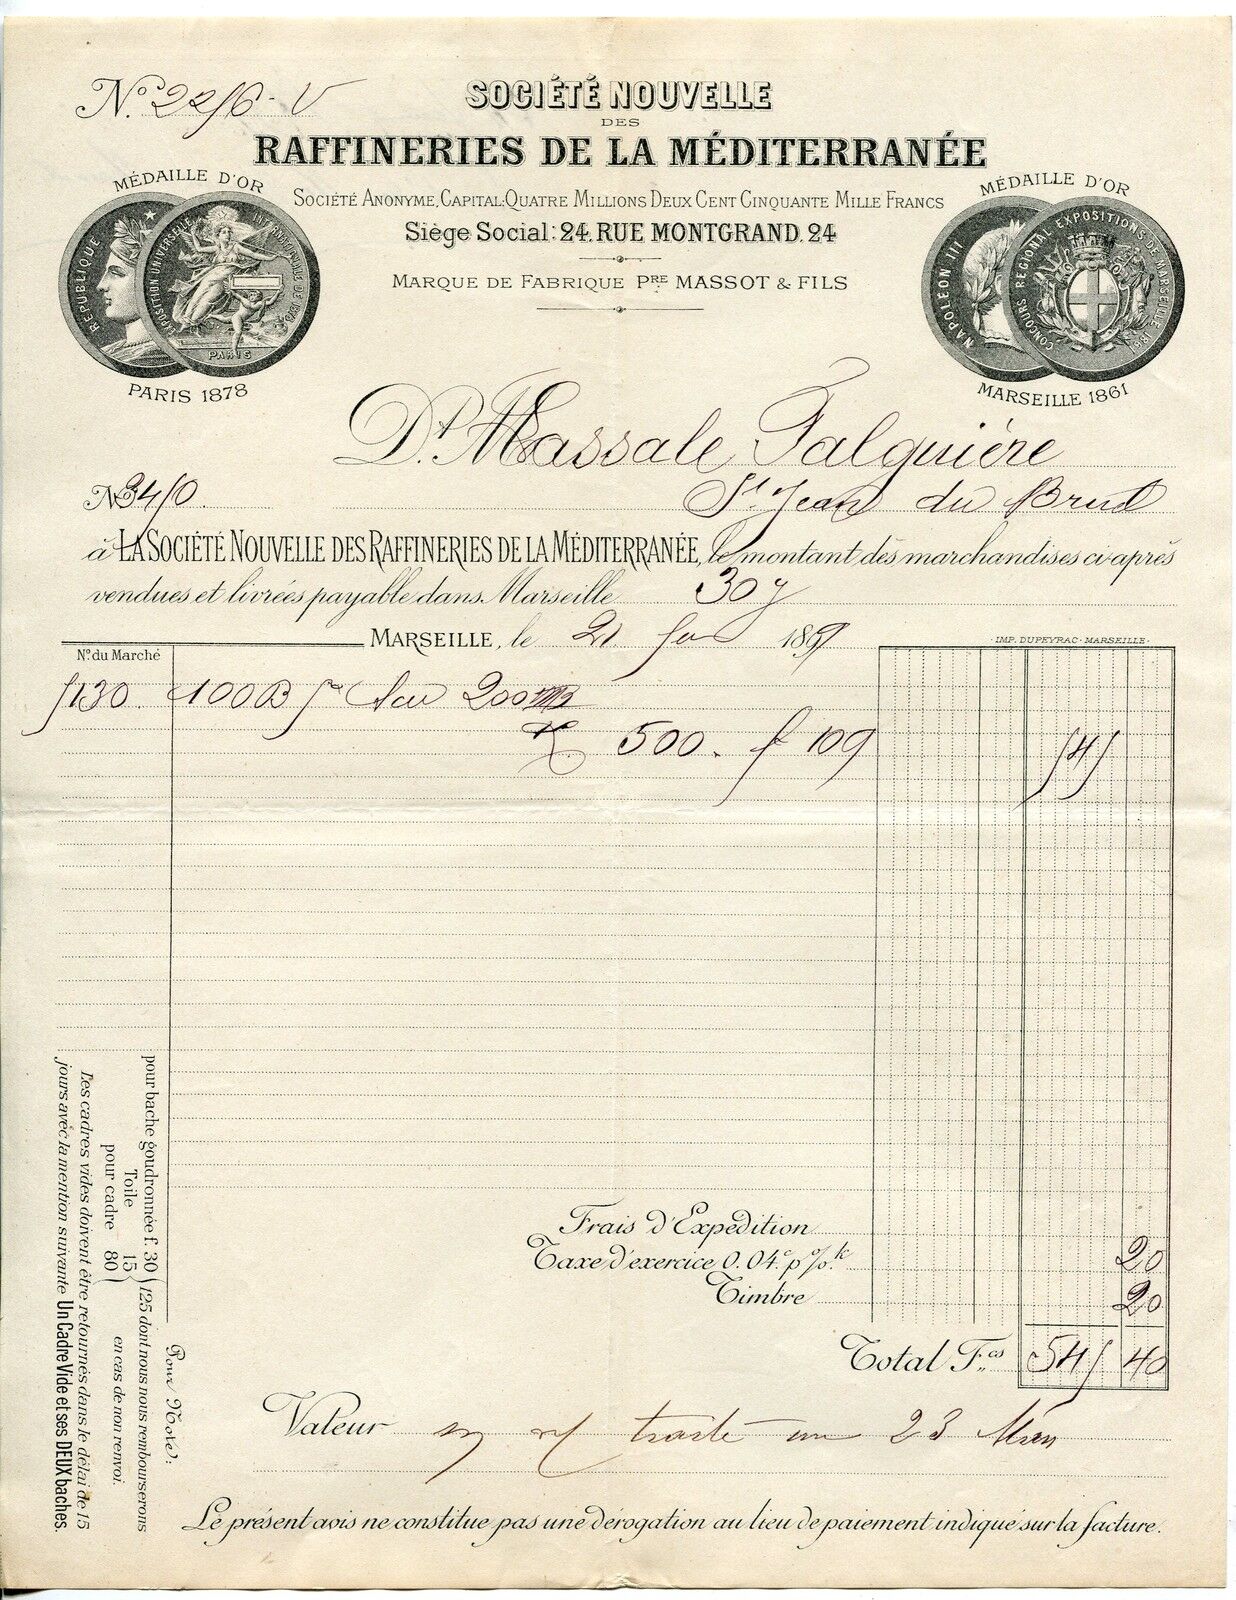 SOCIÉTÉ NOUVELLE
DES
RAFFINERIES DE LA MÉDITERRANÉE
SOCIÉTÉ ANONYME, CAPITAL: QUATRE MILLIONS DEUX CENT CINQUANTE MILLE FRANCS
Siège Social: 24, RUE MONTGRAND, 24
MARQUE DE FABRIQUE PRE MASSOT & FILS
MÉDAILLE D'OR
RÉPUBLIQUE
EXPOSITION UNIVERSELLE INTERNATIONALE DE 1878
PARIS
PARIS 1878
MÉDAILLE D'OR
NAPOLÉON III
CONCOURS RÉGIONAL EXPOSITIONS DE MARSEILLE 1861
MARSEILLE 1861
Dt. Massale Falguière
St. Jean du Brud
à LA SOCIÉTÉ NOUVELLE DES RAFFINERIES DE LA MÉDITERRANÉE, le montant des marchandises ci-après
vendues et livrées payable dans Marseille 30 j
MARSEILLE, le 21 189
IMP. DUPEYRAC - MARSEILLE
No du Marché
5130 100 B 200
K 500. f 109 545
Frais d'Expédition
Taxe d'exercice 0.04c p % k 20
Timbre 20
Total Fcs 545 40
Valeur traite au 23
Le présent avis ne constitue pas une dérogation au lieu de paiement indiqué sur la facture.
Pour Note:
pour bache goudronnée f. 30
Toile 15
pour cadre 80
125 dont nous nous rembourserons
en cas de non renvoi.
Les cadres vides doivent être retournés dans le délai de 15
jours avec la mention suivante Un Cadre Vide et ses DEUX baches.